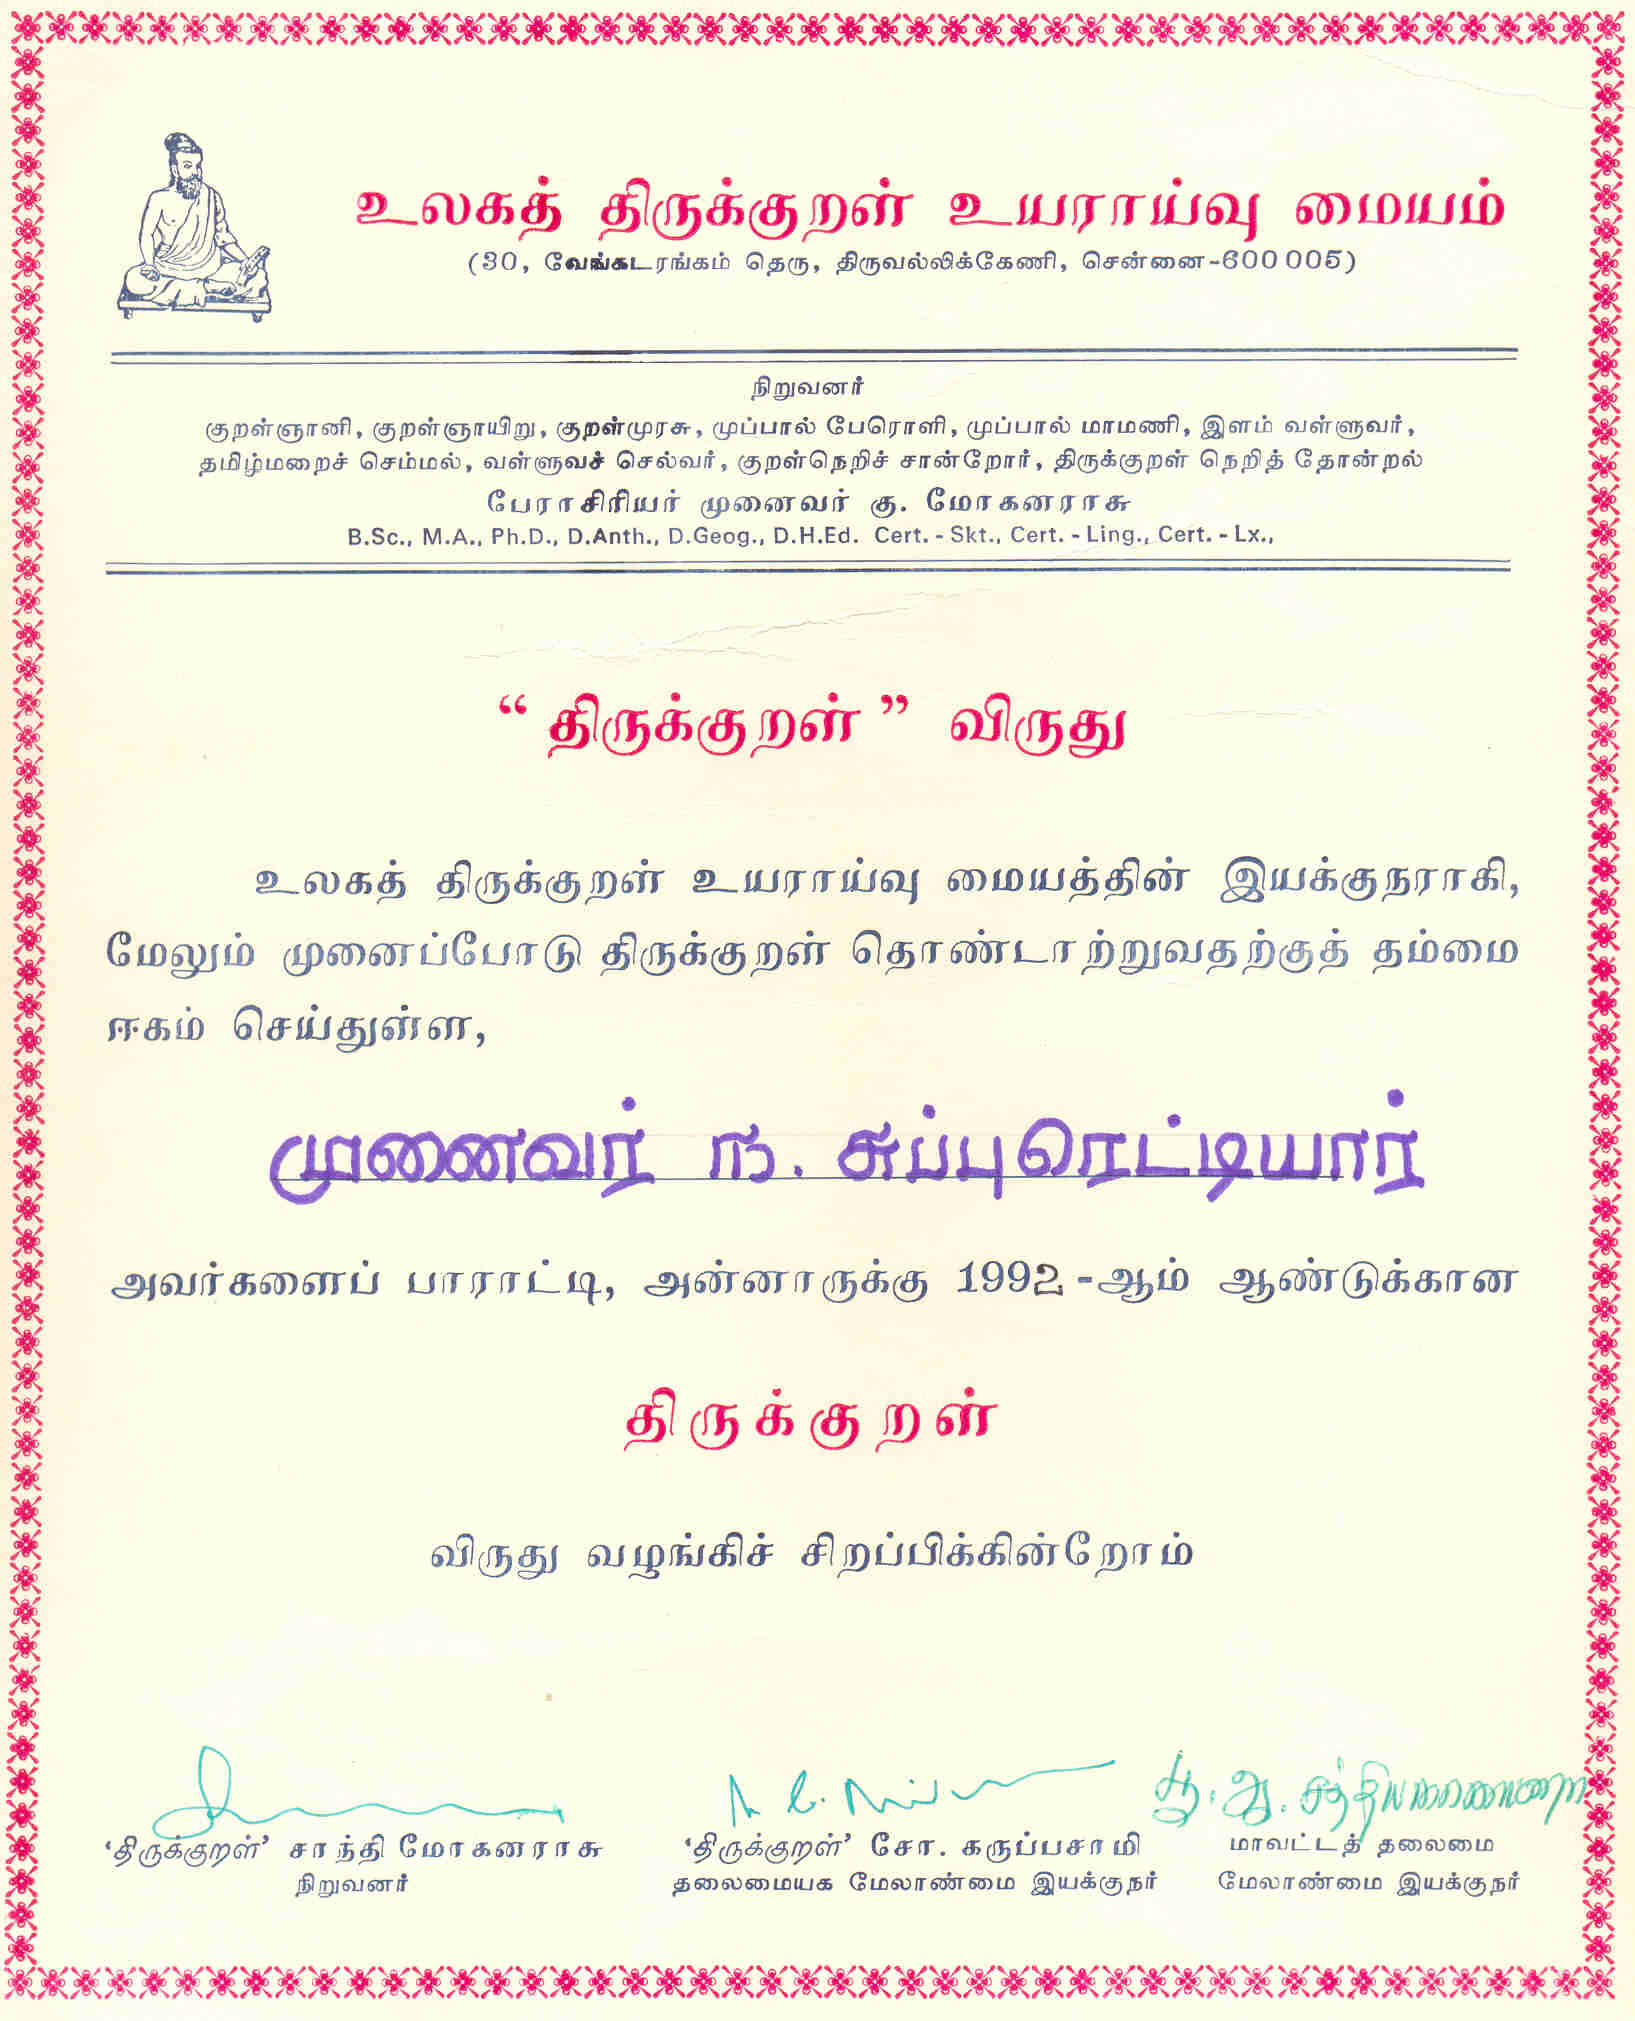 உலகத் திருக்குறள் உயராய்வு மையம்
(30, வேங்கடரங்கம் தெரு, திருவல்லிக்கேணி, சென்னை-600 005)
நிறுவனர்
குறள்ஞானி, குறள்ஞாயிறு, குறள்முரசு, முப்பால் பேரொளி, முப்பால் மாமணி, இளம் வள்ளுவர்,
தமிழ்மறைச் செம்மல், வள்ளுவச் செல்வர், குறள்நெறிச் சான்றோர், திருக்குறள் நெறித் தோன்றல்
பேராசிரியர் முனைவர் கு. மோகனராசு
B.Sc., M.A., Ph.D., D.Anth., D.Geog., D.H.Ed. Cert. - Skt., Cert. - Ling., Cert. - Lx.,
“திருக்குறள்” விருது
உலகத் திருக்குறள் உயராய்வு மையத்தின் இயக்குநராகி,
மேலும் முனைப்போடு திருக்குறள் தொண்டாற்றுவதற்குத் தம்மை
ஈகம் செய்துள்ள,
முனைவர் ந. சுப்புரெட்டியார்
அவர்களைப் பாராட்டி, அன்னாருக்கு 1992-ஆம் ஆண்டுக்கான
திருக்குறள்
விருது வழங்கிச் சிறப்பிக்கின்றோம்
‘திருக்குறள்’ சாந்தி மோகனராசு
நிறுவனர்
‘திருக்குறள்’ சோ. கருப்பசாமி
தலைமையக மேலாண்மை இயக்குநர்
பூ. ஆ.
மாவட்டத் தலைமை
மேலாண்மை இயக்குநர்